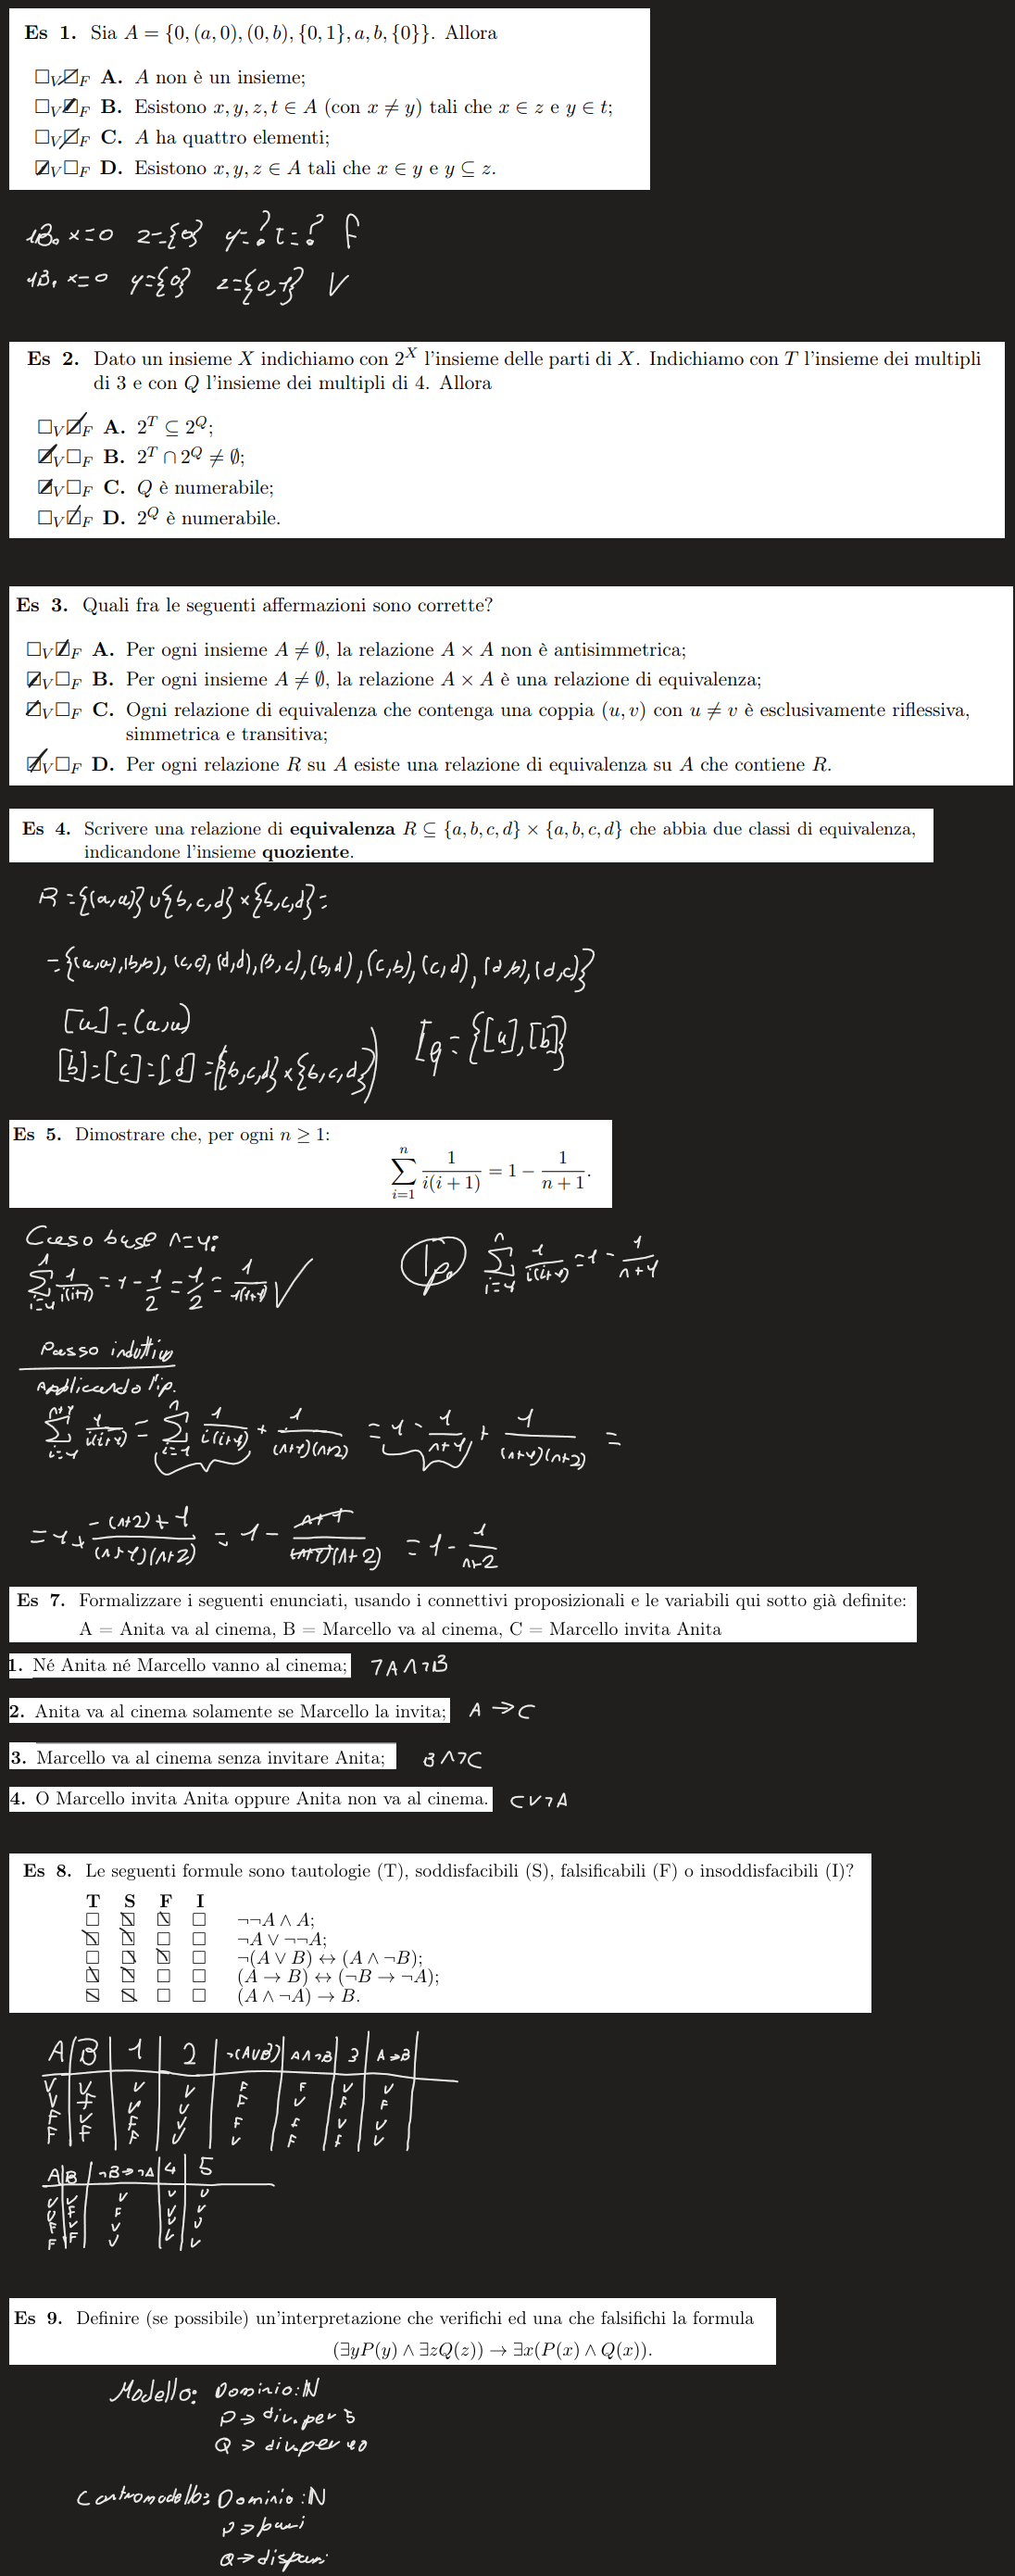 Es 1. Sia A = {0, (a, 0), (0, b), {0, 1}, a, b, {0}}. Allora
□V☑F A. A non è un insieme;
□V☑F B. Esistono x, y, z, t ∈ A (con x ≠ y) tali che x ∈ z e y ∈ t;
□V☑F C. A ha quattro elementi;
☑V□F D. Esistono x, y, z ∈ A tali che x ∈ y e y ⊆ z.
1B. x=0 z={0} y=? t=? F
1B. x=0 y={0} z={0,1} V
Es 2. Dato un insieme X indichiamo con 2^X l'insieme delle parti di X. Indichiamo con T l'insieme dei multipli
di 3 e con Q l'insieme dei multipli di 4. Allora
□V☑F A. 2^T ⊆ 2^Q;
☑V□F B. 2^T ∩ 2^Q ≠ ∅;
☑V□F C. Q è numerabile;
□V☑F D. 2^Q è numerabile.
Es 3. Quali fra le seguenti affermazioni sono corrette?
□V☑F A. Per ogni insieme A ≠ ∅, la relazione A × A non è antisimmetrica;
☑V□F B. Per ogni insieme A ≠ ∅, la relazione A × A è una relazione di equivalenza;
☑V□F C. Ogni relazione di equivalenza che contenga una coppia (u, v) con u ≠ v è esclusivamente riflessiva,
simmetrica e transitiva;
☑V□F D. Per ogni relazione R su A esiste una relazione di equivalenza su A che contiene R.
Es 4. Scrivere una relazione di equivalenza R ⊆ {a, b, c, d} × {a, b, c, d} che abbia due classi di equivalenza,
indicandone l'insieme quoziente.
R={(a,a)}∪{b,c,d}×{b,c,d}=
={(a,a),(b,b),(c,c),(d,d),(b,c),(b,d),(c,b),(c,d),(d,b),(d,c)}
[a]=(a,a)
[b]=[c]=[d]=({b,c,d}×{b,c,d}) Iq={[a],[b]}
Es 5. Dimostrare che, per ogni n ≥ 1:
∑_{i=1}^{n} 1/(i(i + 1)) = 1 − 1/(n + 1).
Caso base n=1:
∑_{i=1}^{1} 1/(i(i+1)) = 1 - 1/2 = 1/2 = 1/(1(1+1)) ✓ Ip ∑_{i=1}^{n} 1/(i(i+1)) = 1 - 1/(n+1)
Passo induttivo
Applicando l'ip.
∑_{i=1}^{n+1} 1/(i(i+1)) = ∑_{i=1}^{n} 1/(i(i+1)) + 1/((n+1)(n+2)) = 1 - 1/(n+1) + 1/((n+1)(n+2)) =
= 1 + (-(n+2)+1)/((n+1)(n+2)) = 1 - (n+1)/((n+1)(n+2)) = 1 - 1/(n+2)
Es 7. Formalizzare i seguenti enunciati, usando i connettivi proposizionali e le variabili qui sotto già definite:
A = Anita va al cinema, B = Marcello va al cinema, C = Marcello invita Anita
1. Né Anita né Marcello vanno al cinema; ¬A∧¬B
2. Anita va al cinema solamente se Marcello la invita; A→C
3. Marcello va al cinema senza invitare Anita; B∧¬C
4. O Marcello invita Anita oppure Anita non va al cinema. C∨¬A
Es 8. Le seguenti formule sono tautologie (T), soddisfacibili (S), falsificabili (F) o insoddisfacibili (I)?
T S F I
□ ☑ ☑ □ ¬¬A ∧ A;
☑ ☑ □ □ ¬A ∨ ¬¬A;
□ ☑ ☑ □ ¬(A ∨ B) ↔ (A ∧ ¬B);
☑ ☑ □ □ (A → B) ↔ (¬B → ¬A);
☑ ☑ □ □ (A ∧ ¬A) → B.
A B 1 2 ¬(A∨B) A∧¬B 3 A→B
V V V V F F V V
V F V V F V F F
F V F V F F V V
F F F V V F F V
A B ¬B→¬A 4 5
V V V V V
V F F V V
F V V V V
F F V V V
Es 9. Definire (se possibile) un'interpretazione che verifichi ed una che falsifichi la formula
(∃yP(y) ∧ ∃zQ(z)) → ∃x(P(x) ∧ Q(x)).
Modello: Dominio: ℕ
P → div. per 5
Q → div. per 10
Contromodello: Dominio: ℕ
P → pari
Q → dispari